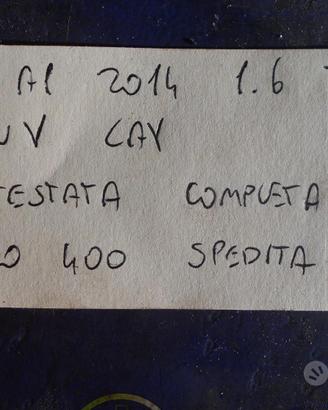 A1 2014 1.6
CAY
TESTATA COMPLETA
400 SPEDITA